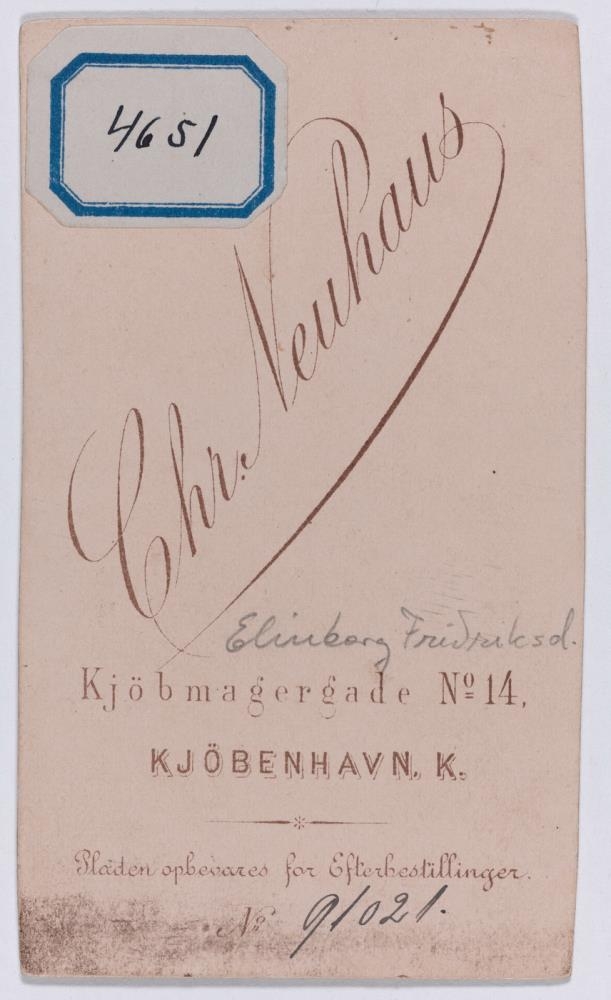 4651
Chr. Neuhaus
Elinborg Friðriksd.
Kjöbmagergade No 14,
KJÖBENHAVN. K.
Pladen opbevares for Efterbestillinger.
No 91021.